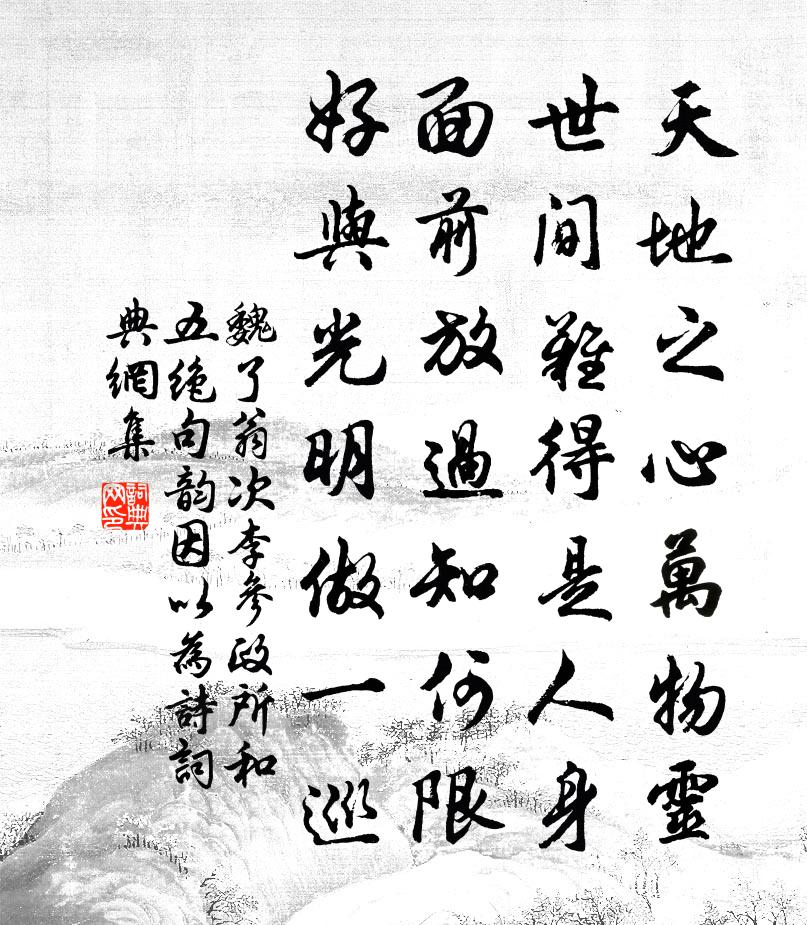 天地之心萬物靈
世間難得是人身
面前放過知何限
好與光明做一巡
魏了翁次李參政所和
五絶句韵因以為詩詞
典網集
詞典
网印